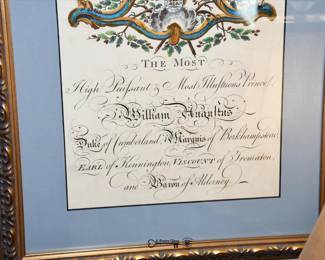 The Most
High Puissant & Most Illustrious Prince
William Augustus
Duke of Cumberland Marquis of Berkhampstead
Earl of Kennington, Viscount of Trematon,
and Baron of Alderney